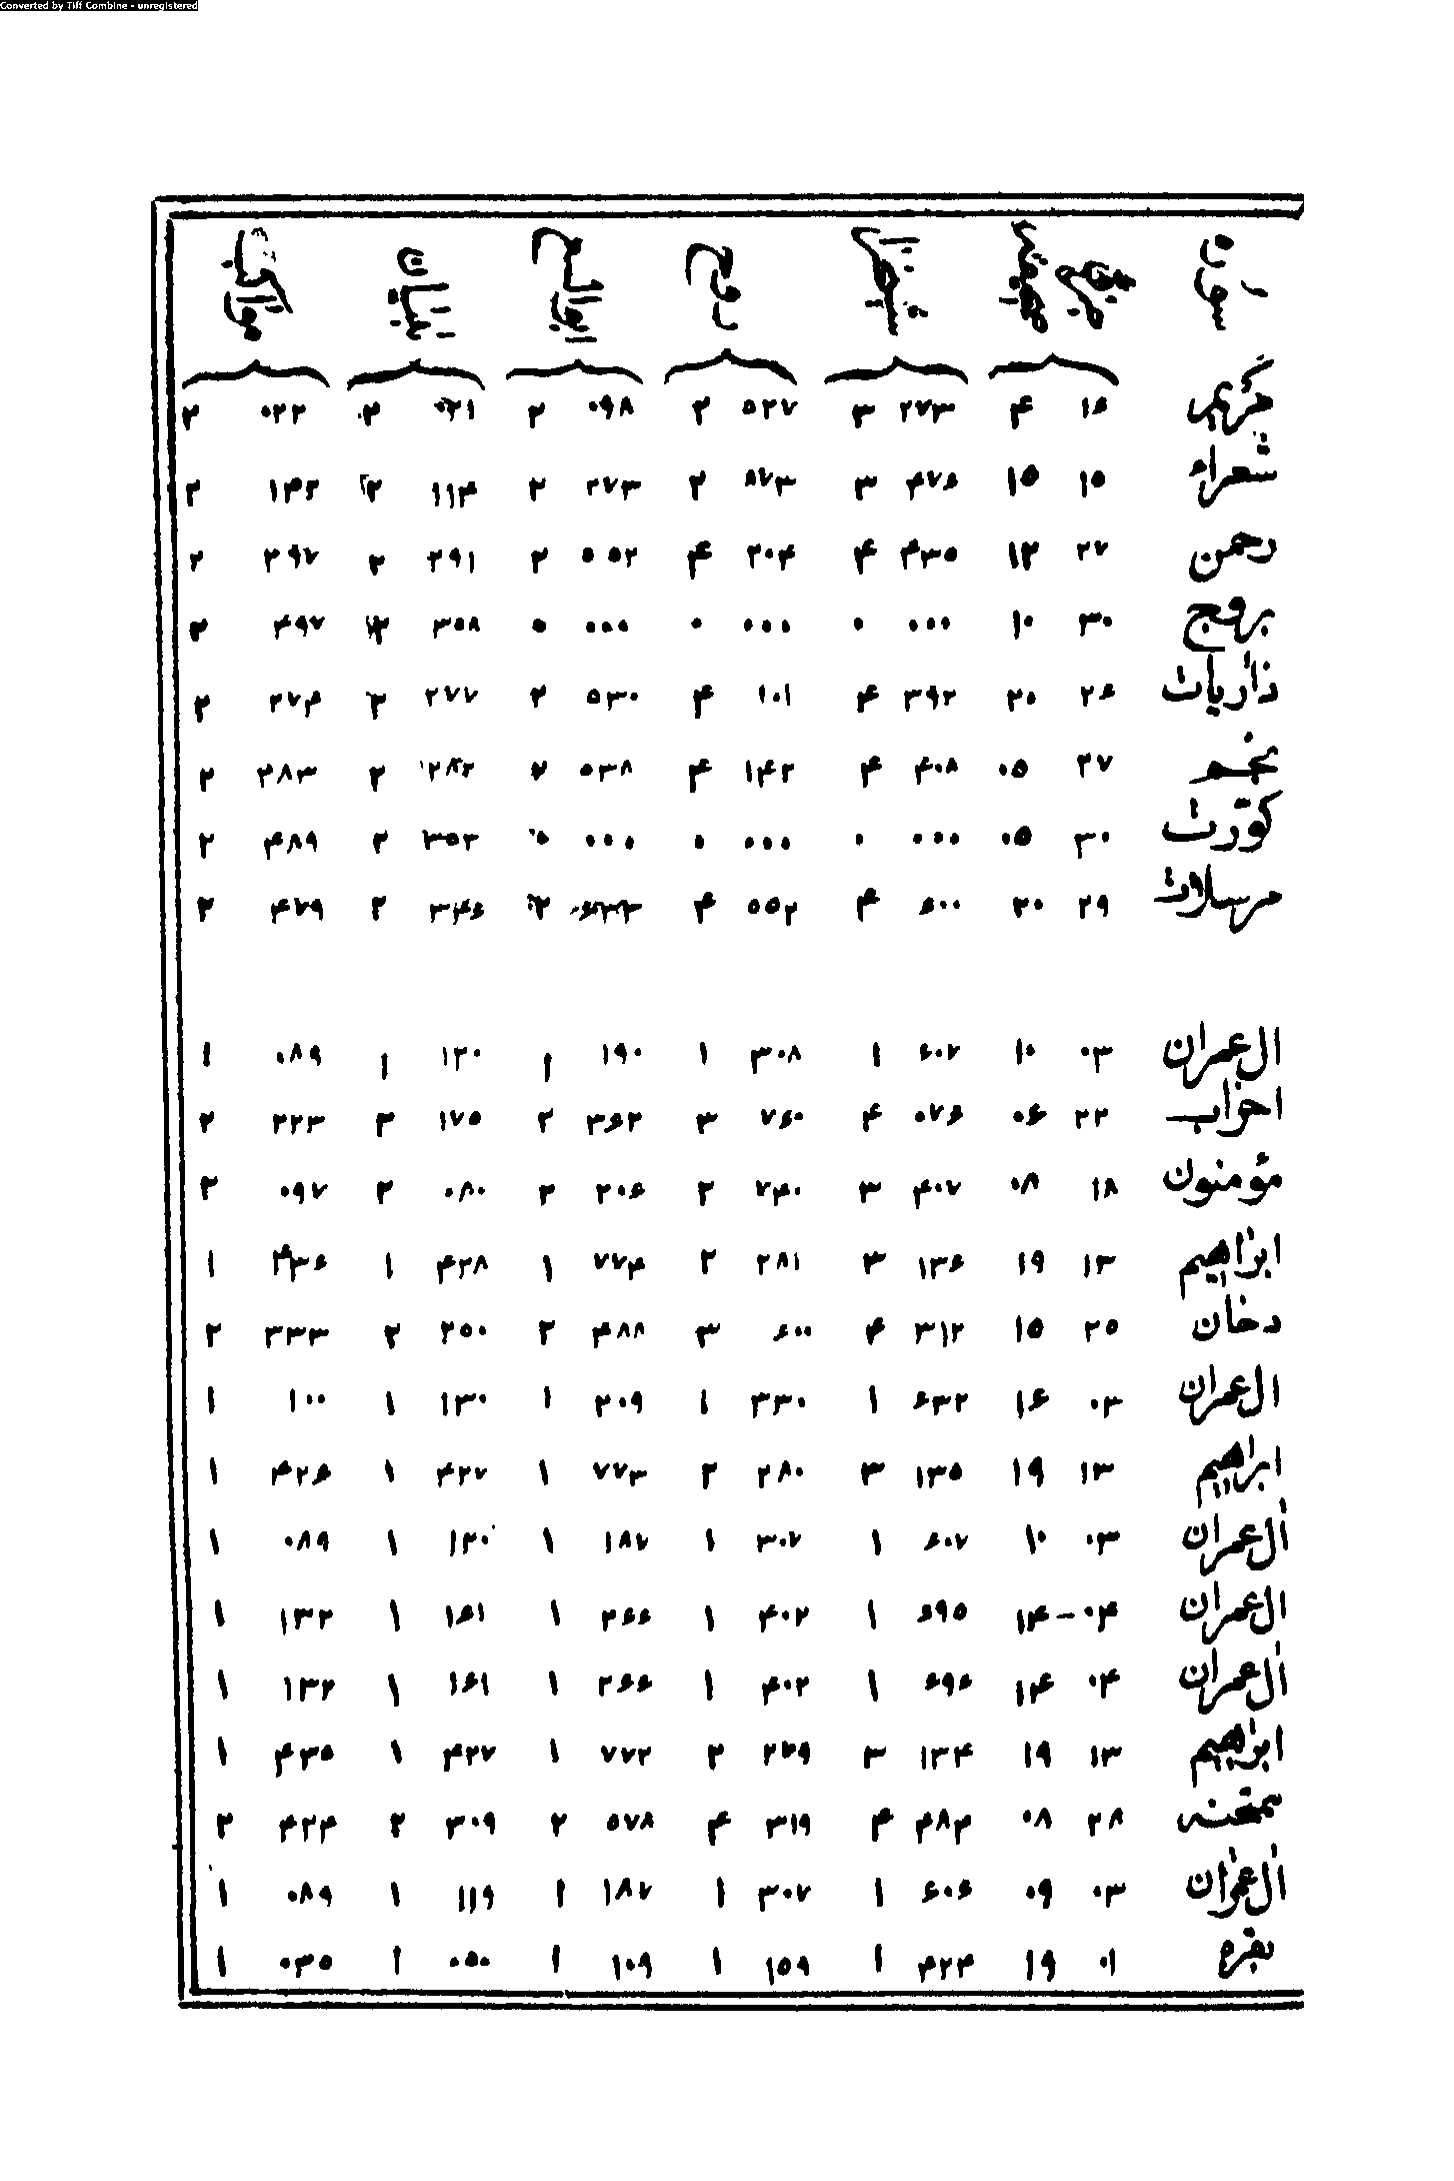 Converted by Tiff Combine - unregistered
مریم ۱۶ ۴ ۲۷۳ ۳ ۵۲۷ ۲ ۰۹۸ ۲ ۰۲۱ ۲ ۰۲۲ ۲
شعراء ۱۵ ۱۵ ۴۷۶ ۳ ۸۷۳ ۲ ۲۷۳ ۲ ۱۱۴ ۲ ۱۴۲ ۲
رحمن ۲۷ ۱۲ ۴۳۵ ۴ ۲۰۴ ۴ ۵۵۲ ۲ ۲۹۱ ۲ ۲۹۷ ۲
بروج ۳۰ ۱۰ ۰۰۰ ۰ ۰۰۰ ۰ ۰۰۰ ۰ ۳۵۸ ۲ ۴۹۷ ۲
ذاریات ۲۶ ۲۰ ۳۹۲ ۴ ۱۰۱ ۴ ۵۳۰ ۲ ۲۷۷ ۲ ۲۷۴ ۲
نجم ۲۷ ۰۵ ۴۰۸ ۴ ۱۴۲ ۴ ۵۳۸ ۲ ۲۸۲ ۲ ۲۸۳ ۲
کوّرت ۳۰ ۰۵ ۰۰۰ ۰ ۰۰۰ ۰ ۰۰۰ ۰ ۳۵۳ ۲ ۴۸۹ ۲
مرسلات ۲۹ ۲۰ ۶۰۰ ۴ ۵۵۲ ۴ ۶۳۳ ۲ ۳۴۶ ۲ ۴۷۹ ۲
ال عمران ۰۳ ۱۰ ۶۰۷ ۱ ۳۰۸ ۱ ۱۹۰ ۱ ۱۲۰ ۱ ۰۸۹ ۱
احزاب ۲۲ ۰۶ ۰۷۶ ۴ ۷۶۰ ۳ ۳۶۲ ۲ ۱۷۵ ۲ ۲۲۳ ۲
مؤمنون ۱۸ ۰۸ ۴۰۷ ۳ ۷۴۰ ۲ ۲۰۶ ۲ ۰۸۰ ۲ ۰۹۷ ۲
ابراهیم ۱۳ ۱۹ ۱۳۶ ۳ ۲۸۱ ۲ ۷۷۴ ۱ ۴۲۸ ۱ ۴۳۶ ۱
دخان ۲۵ ۱۵ ۳۱۲ ۴ ۶۰۰ ۳ ۴۸۸ ۲ ۲۵۰ ۲ ۳۳۳ ۲
ال عمران ۰۳ ۱۶ ۶۳۲ ۱ ۳۳۰ ۱ ۲۰۹ ۱ ۱۳۰ ۱ ۱۰۰ ۱
ابراهیم ۱۳ ۱۹ ۱۳۵ ۳ ۲۸۰ ۲ ۷۷۳ ۱ ۴۲۷ ۱ ۴۲۶ ۱
ال عمران ۰۳ ۱۰ ۶۰۷ ۱ ۳۰۷ ۱ ۱۸۷ ۱ ۱۲۰ ۱ ۰۸۹ ۱
ال عمران ۰۴-۱۴ ۶۹۵ ۱ ۴۰۲ ۱ ۲۶۶ ۱ ۱۶۱ ۱ ۱۳۲ ۱
ال عمران ۰۴ ۱۴ ۶۹۶ ۱ ۴۰۲ ۱ ۲۶۶ ۱ ۱۶۱ ۱ ۱۳۲ ۱
ابراهیم ۱۳ ۱۹ ۱۳۴ ۳ ۲۷۹ ۲ ۷۷۲ ۱ ۴۲۷ ۱ ۴۳۵ ۱
ممتحنه ۲۸ ۰۸ ۴۸۴ ۴ ۳۱۹ ۴ ۵۷۸ ۲ ۳۰۹ ۲ ۴۲۴ ۲
ال عمران ۰۳ ۰۹ ۶۰۶ ۱ ۳۰۷ ۱ ۱۸۷ ۱ ۱۱۹ ۱ ۰۸۹ ۱
بقره ۰۱ ۱۹ ۴۲۴ ۱ ۱۵۹ ۱ ۱۰۹ ۱ ۰۵۰ ۱ ۰۳۵ ۱